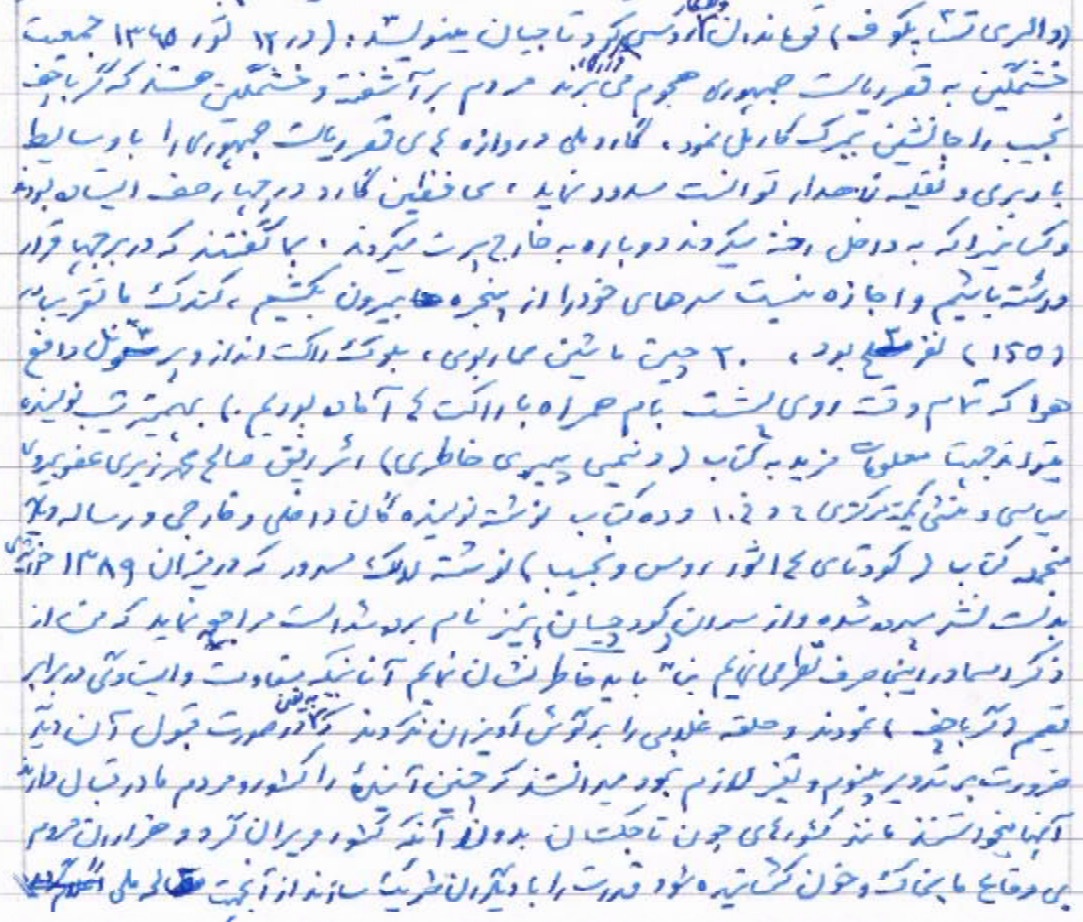 (والری تشابکوف) قوماندان گارد روسی کودتاچیان مینویسد: (در ۱۲ ثور ۱۳۶۵ جمعیت
خشمگین به قصر ریاست جمهوری هجوم می برند مردم برآشفته و خشمگین هستند که گرباچف
نجیب را جانشین ببرک کارمل نمود، گارد ملی دروازه های قصر ریاست جمهوری را با وسایط
باربری و نقلیه توانست مسدود نماید، محافظین گارد در چهار صف ایستاده بودند
و کسانیرا که به داخل رخنه میکردند دوباره به خارج پرت میکردند، بما گفتند که در برجها قرار
داشته باشیم و اجازه نیست سرهای خود را از پنجره ها بیرون بکشیم، کندک ما تقریباً
(۱۵۰) نفر مسلح بود، ۳۰ چین ماشین محاربوی، بلوک راکت انداز و پرسونل دافع
هوا که تمام وقت روی پشت بام همراه با راکت ها آماده بودیم.) بهمین ترتیب نویسنده
میتواند جهت معلومات مزید به کتاب (دنیمی پیړی خاطری) اثر رفیق صالح محمد زیری عضو بیروی
سیاسی و منشی کمیته مرکزی و ده کتاب نوشته نویسنده گان داخلی و خارجی و رساله
منجمله کتاب (کودتای ۱۴ ثور روس و نجیب) نوشته که در میزان ۱۳۸۹
بدست نشر سپرده شده و از سران کودتاچیان نیز نام برده شده است مراجع نماید که من از
ذکر اسما در اینجا صرف نظر می نمایم بناً باید خاطر نشان نمایم آنانیکه مقاومت و ایستادگی در برابر
تصمیم (گرباچف) نمودند و حلقه غلامی را بر گوش آویزان نکردند در صورت قبول آن دیگر
ضرورت به ترور پلینوم و تغیر لازم نبود میدانستند که چنین آینده را کشور و مردم ما در قبال دارد
آنها میخواستند مانند کشورهای چون تاجکستان بدون آنکه کشور ویران گردد و هزاران مردم
بی دفاع ما بخاک و خون کشانیده شود قدرت را با دیگران شریک سازند از آنجهت ملی